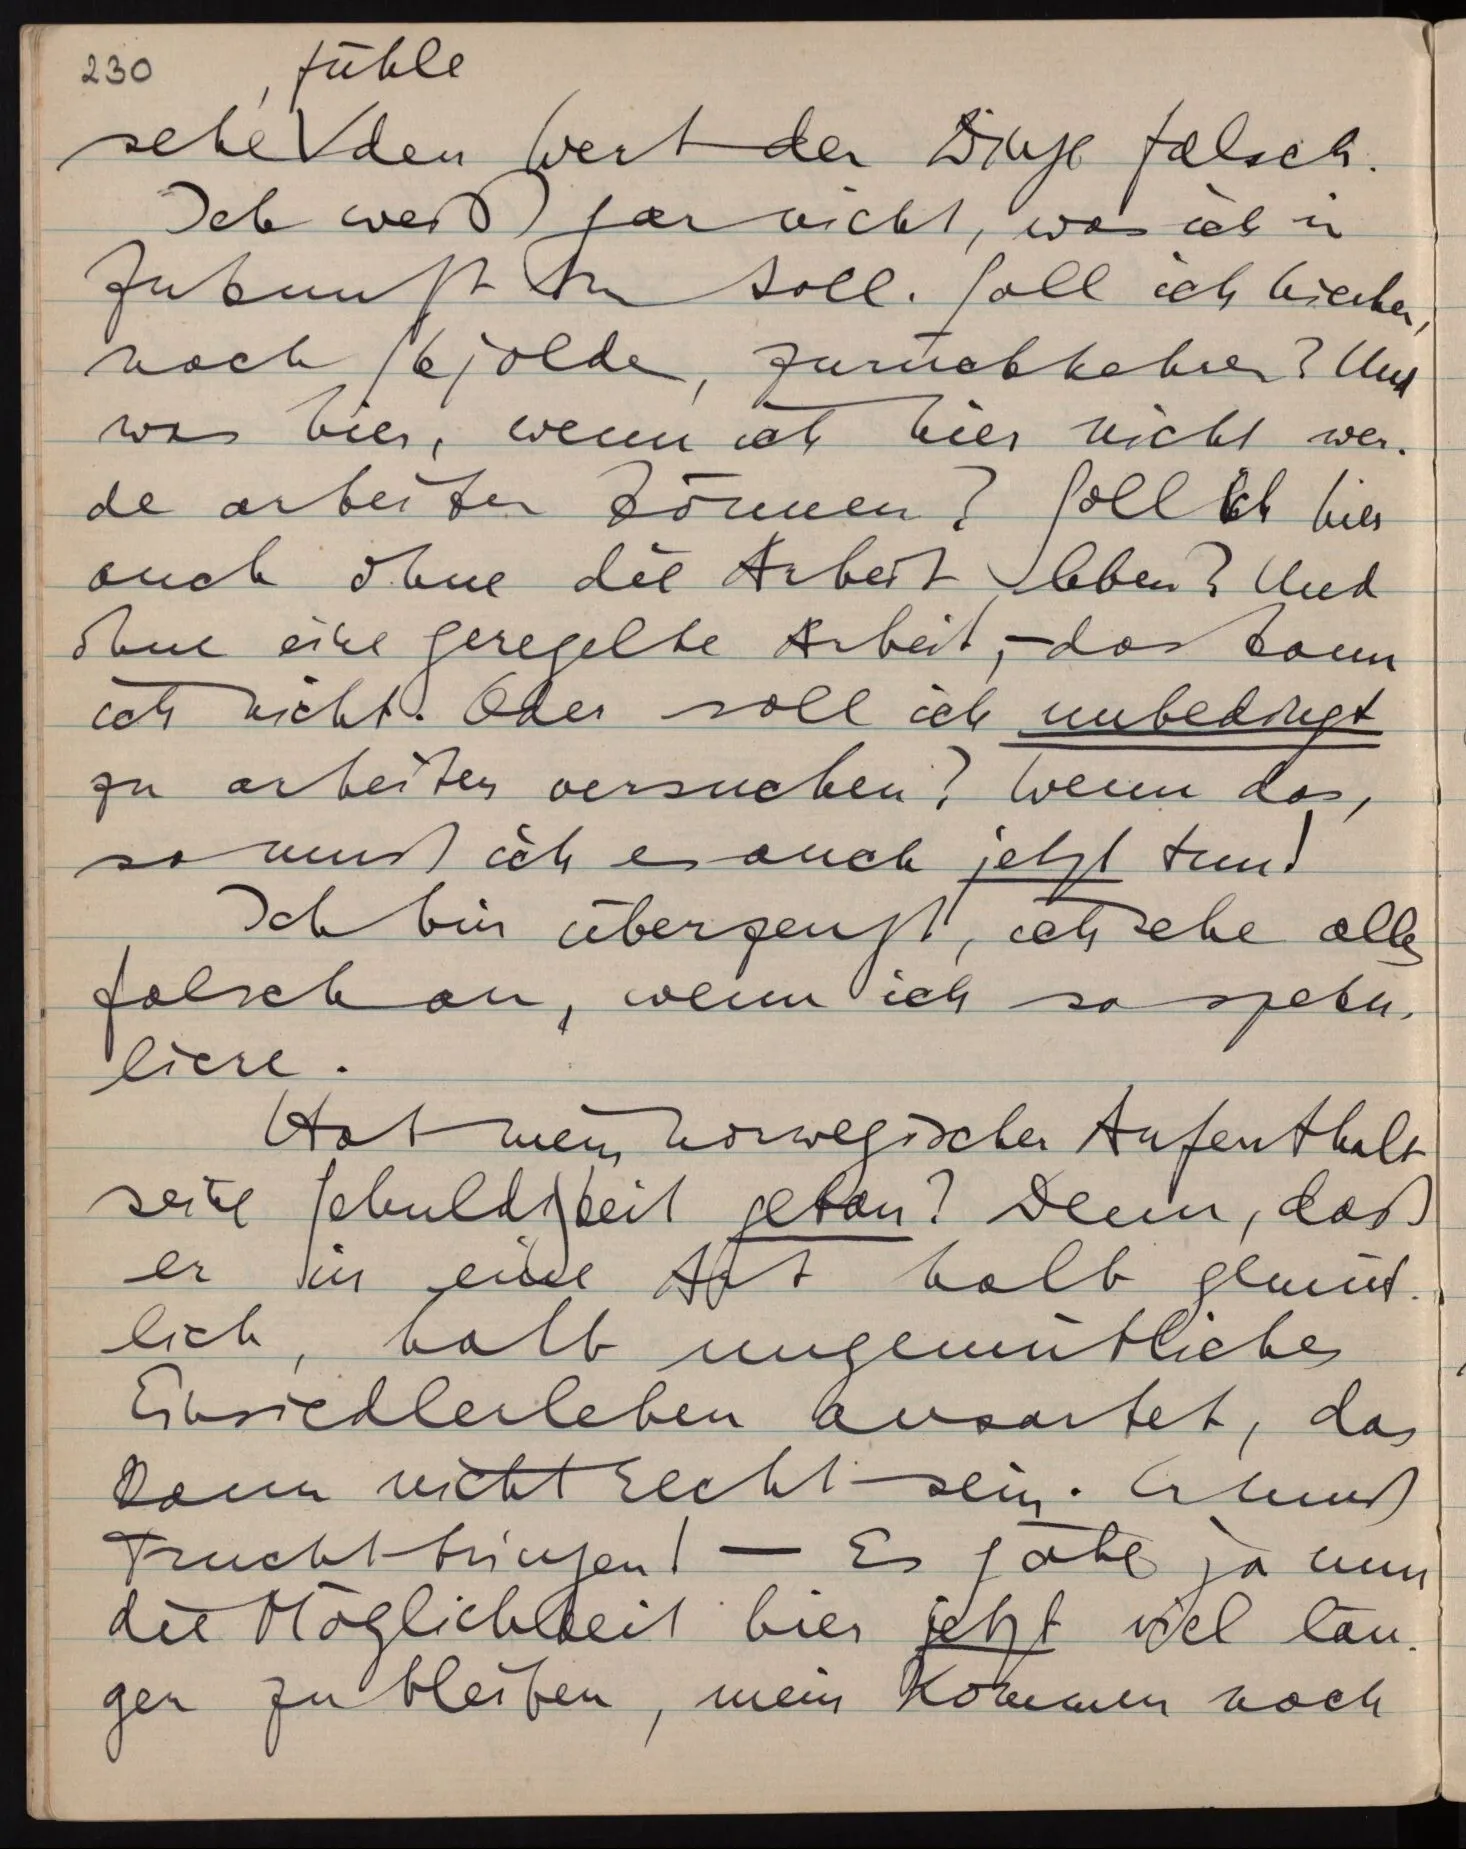 230
, fühle
sehe den Wert der Dinge falsch.
Ich weiß gar nicht, was ich in
Zukunft tun soll. Soll ich hierher,
nach Skjolden, zurückkehren? Und
was hier, wenn ich hier nicht wer-
de arbeiten können? Soll ich hier
auch ohne die Arbeit leben? Und
ohne eine geregelte Arbeit, – das kann
ich nicht. Oder soll ich unbedingt
zu arbeiten versuchen? Wenn das,
so muß ich es auch jetzt tun!
Ich bin überzeugt, ich sehe alles
falsch an, wenn ich so speku-
liere.
Hat mein norwegischer Aufenthalt
seine Schuldigkeit getan? Denn, daß
er in eine Art halb gemüt-
lich, halb ungemütliches
Einsiedlerleben ausartet, das
kann nicht recht sein. Er muß
Frucht bringen! — Es gäbe ja nun
die Möglichkeit hier jetzt viel län-
ger zu bleiben, mein Kommen nach